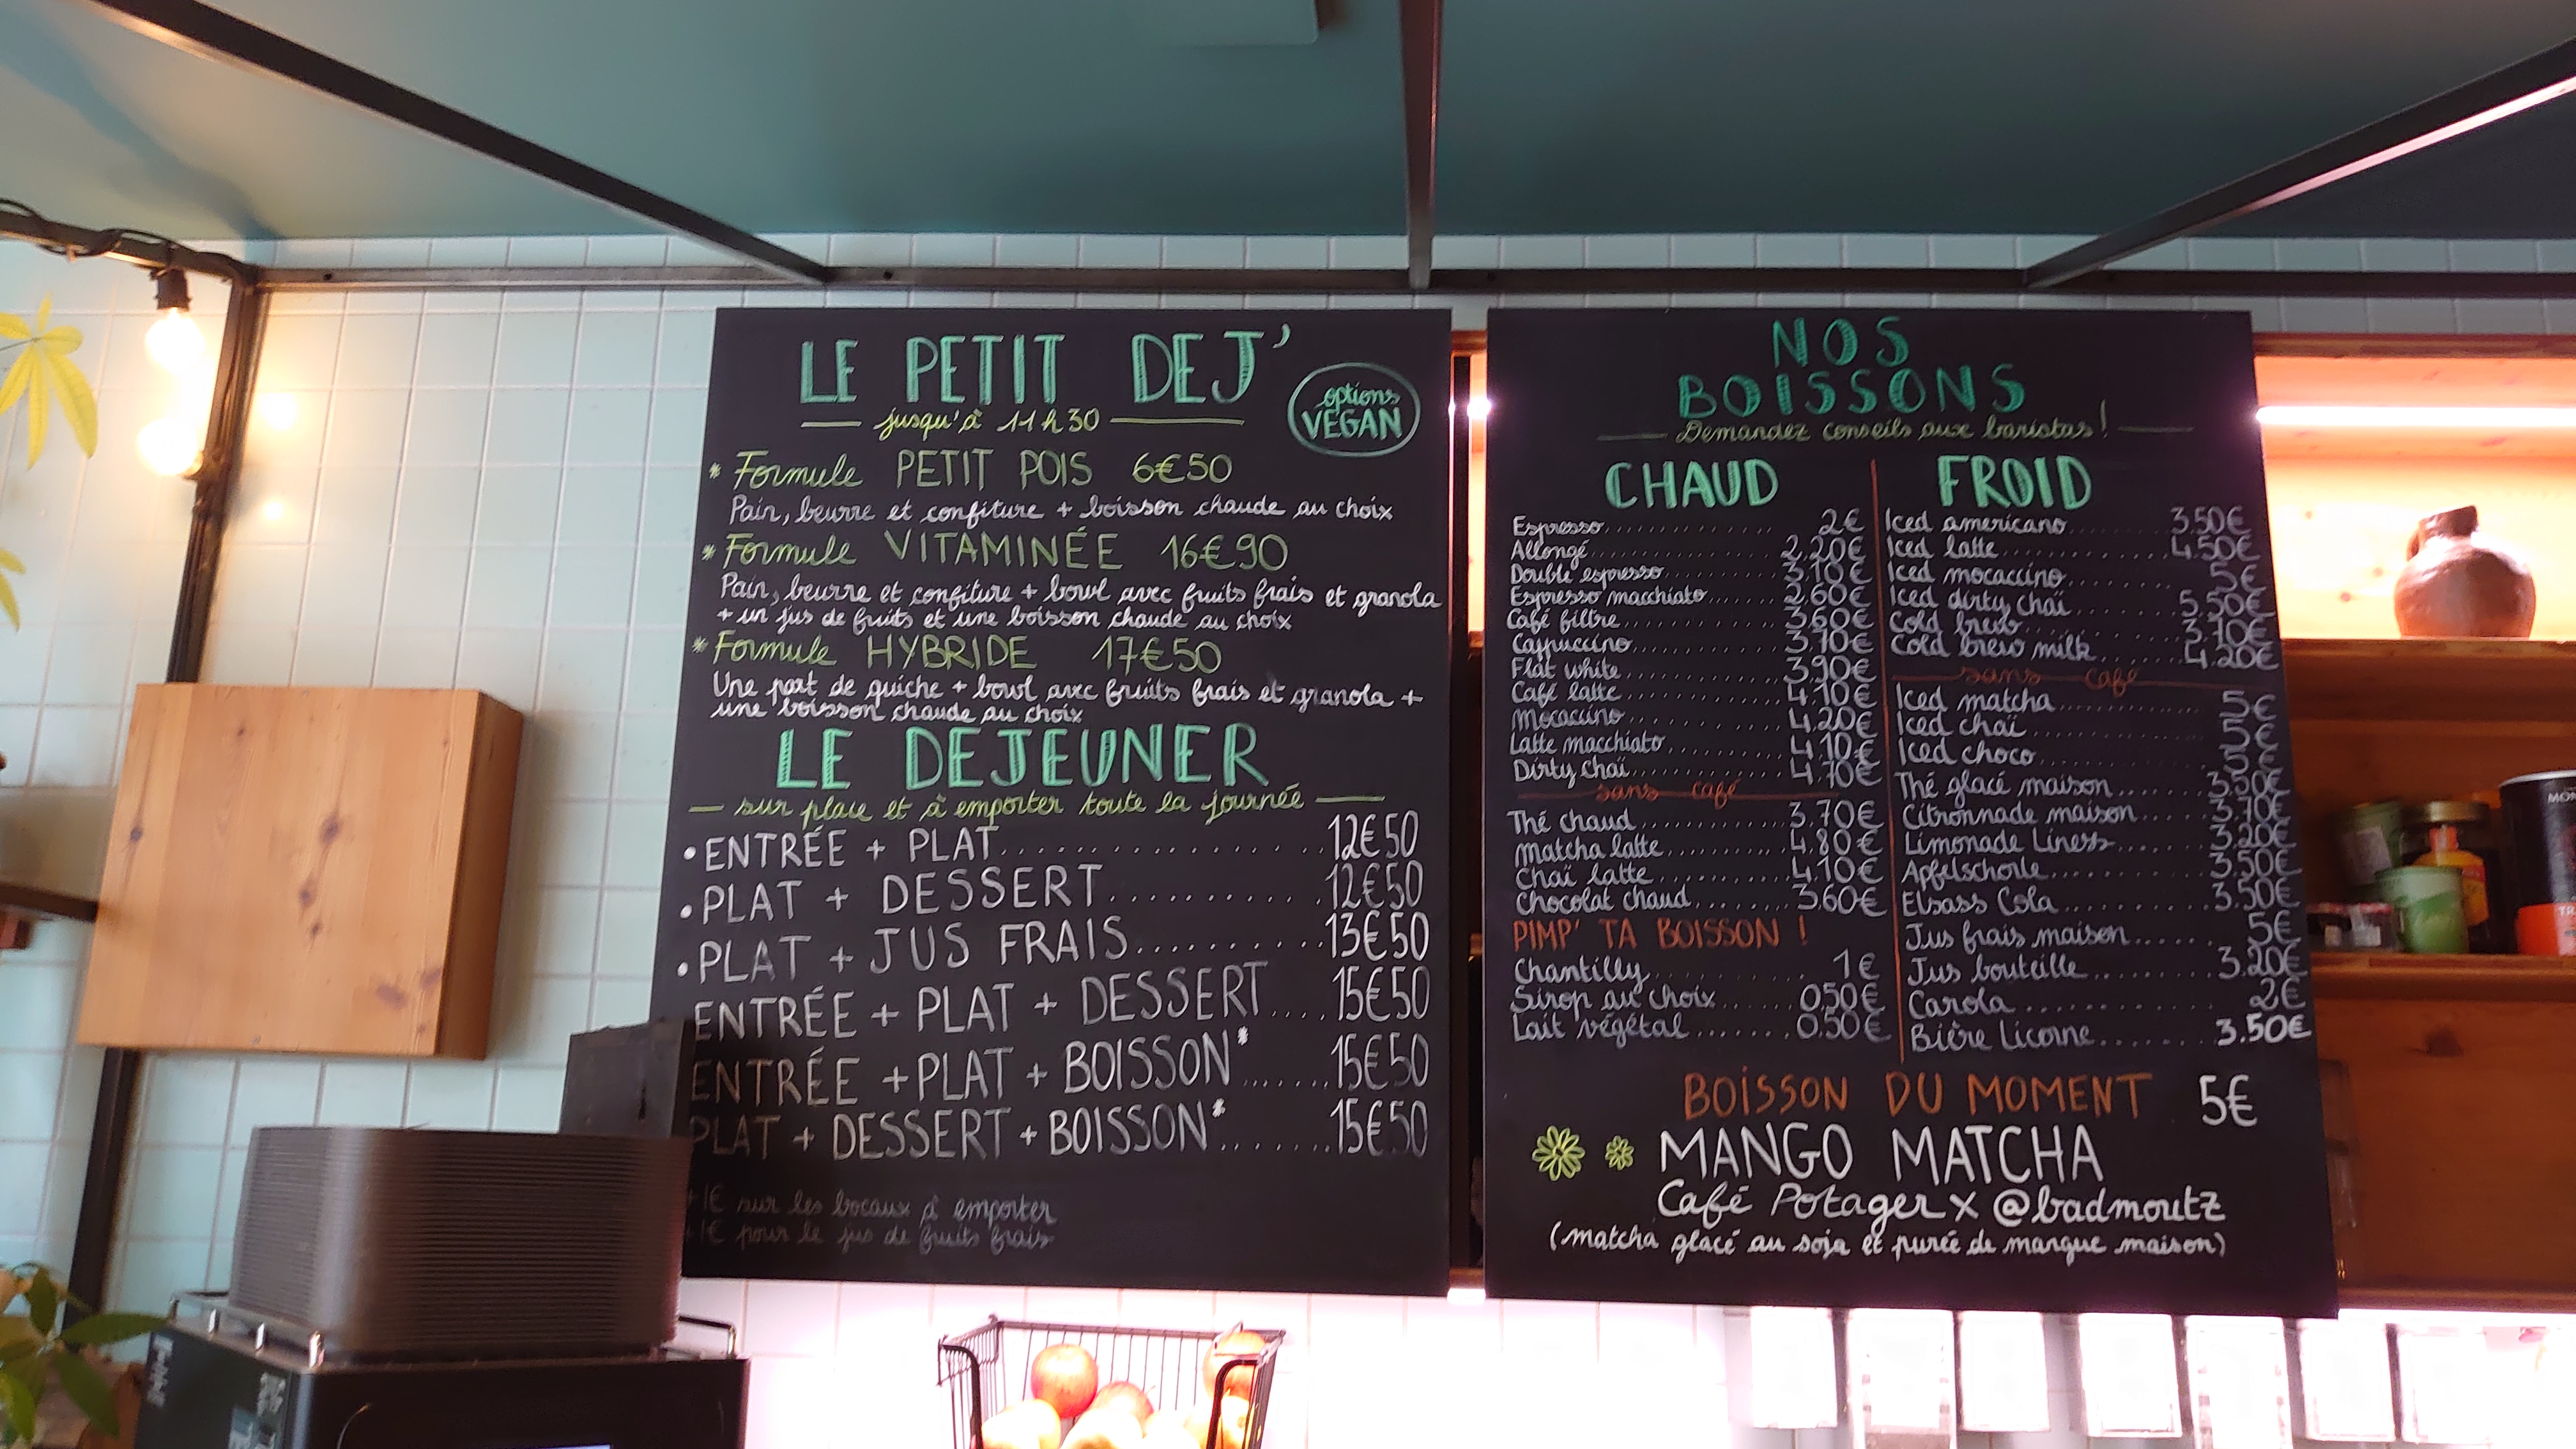 LE PETIT DEJ'
jusqu'à 11h30
options
VEGAN
* Formule PETIT POIS 6€50
Pain, beurre et confiture + boisson chaude au choix
* Formule VITAMINÉE 16€90
Pain, beurre et confiture + bowl avec fruits frais et granola
+ un jus de fruits et une boisson chaude au choix
* Formule HYBRIDE 17€50
Une part de quiche + bowl avec fruits frais et granola +
une boisson chaude au choix
LE DEJEUNER
sur place et à emporter toute la journée
• ENTRÉE + PLAT................ 12€50
• PLAT + DESSERT........... 12€50
• PLAT + JUS FRAIS.......... 13€50
ENTRÉE + PLAT + DESSERT.... 15€50
ENTRÉE + PLAT + BOISSON*...... 15€50
PLAT + DESSERT + BOISSON*....... 15€50
+1€ sur les bocaux à emporter
+1€ pour le jus de fruits frais
NOS
BOISSONS
Demandez conseils aux baristas!
CHAUD
Espresso............ 2€
Allongé............ 2,20€
Double espresso............ 3,10€
Espresso macchiato...... 2,60€
Café filtre............ 3,60€
Cappuccino............ 3.10€
Flat white............ 3,90€
Café latte............ 4,10€
Mocaccino............ 4,20€
Latte macchiato.......... 4,10€
Dirty chaï............ 4,70€
sans café
Thé chaud............ 3,70€
Matcha latte............ 4,80€
Chaï latte............ 4,10€
Chocolat chaud........ 3,60€
PIMP' TA BOISSON !
Chantilly............ 1€
Sirop au choix...... 0,50€
Lait végétal....... 0,50€
FROID
Iced americano......... 3,50€
Iced latte............ 4,50€
Iced mocaccino......... 5€
Iced dirty chaï......... 5,50€
Cold brew............ 3,10€
Cold brew milk....... 4.20€
sans café
Iced matcha............ 5€
Iced chaï............ 5€
Iced choco............ 5€
Thé glacé maison....... 3,50€
Citronnade maison...... 3,70€
Limonade Liness........ 3,20€
Apfelschorle............ 3,50€
Elsass Cola............ 3,50€
Jus frais maison...... 5€
Jus bouteille......... 3,20€
Carola............ 2€
Bière Licorne........ 3.50€
BOISSON DU MOMENT 5€
MANGO MATCHA
Café Potager x @badmoutz
(matcha glacé au soja et purée de mangue maison)